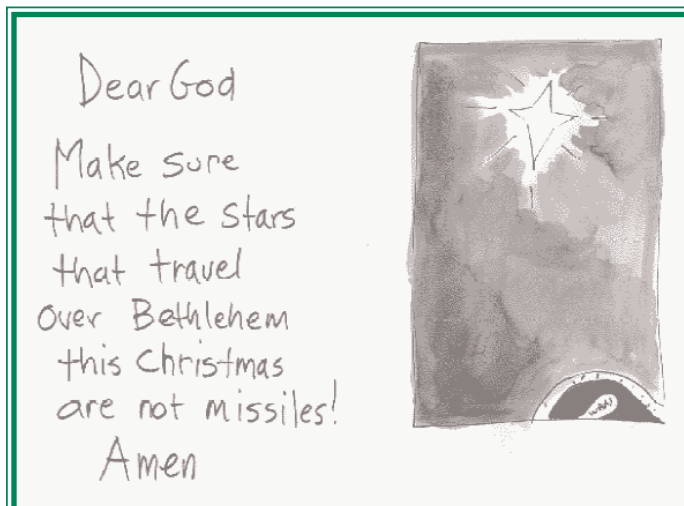 Dear God
Make sure
that the stars
that travel
over Bethlehem
this Christmas
are not missiles!
Amen